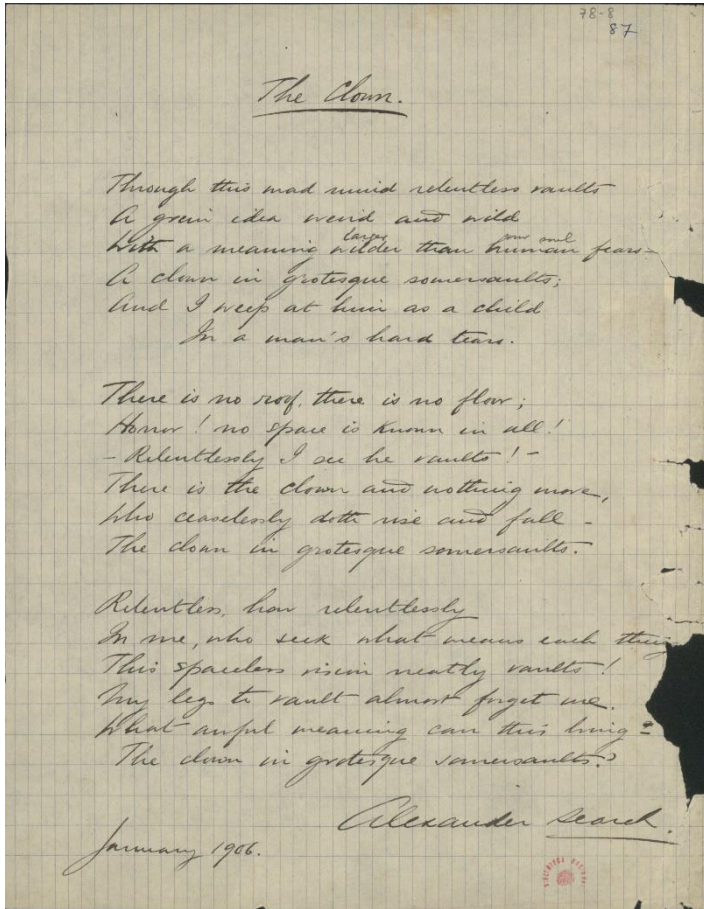 78-8
87
The Clown.
Through this mad mind relentless vaults
A grim idea weird and wild
larger our soul
With a meaning wilder than human fears –
A clown in grotesque somersaults;
And I weep at him as a child
In a man's hard tears.
There is no roof, there is no floor;
Horror! no space is known in all!
– Relentlessly I see he vaults! –
There is the clown and nothing more,
Who ceaselessly doth rise and fall –
The clown in grotesque somersaults.
Relentless, how relentlessly
In me, who seek what means each thing
This spaceless vision neatly vaults!
My legs to vault almost forget me.
What awful meaning can this bring –
The clown in grotesque somersaults?
Alexander Search.
January 1906.